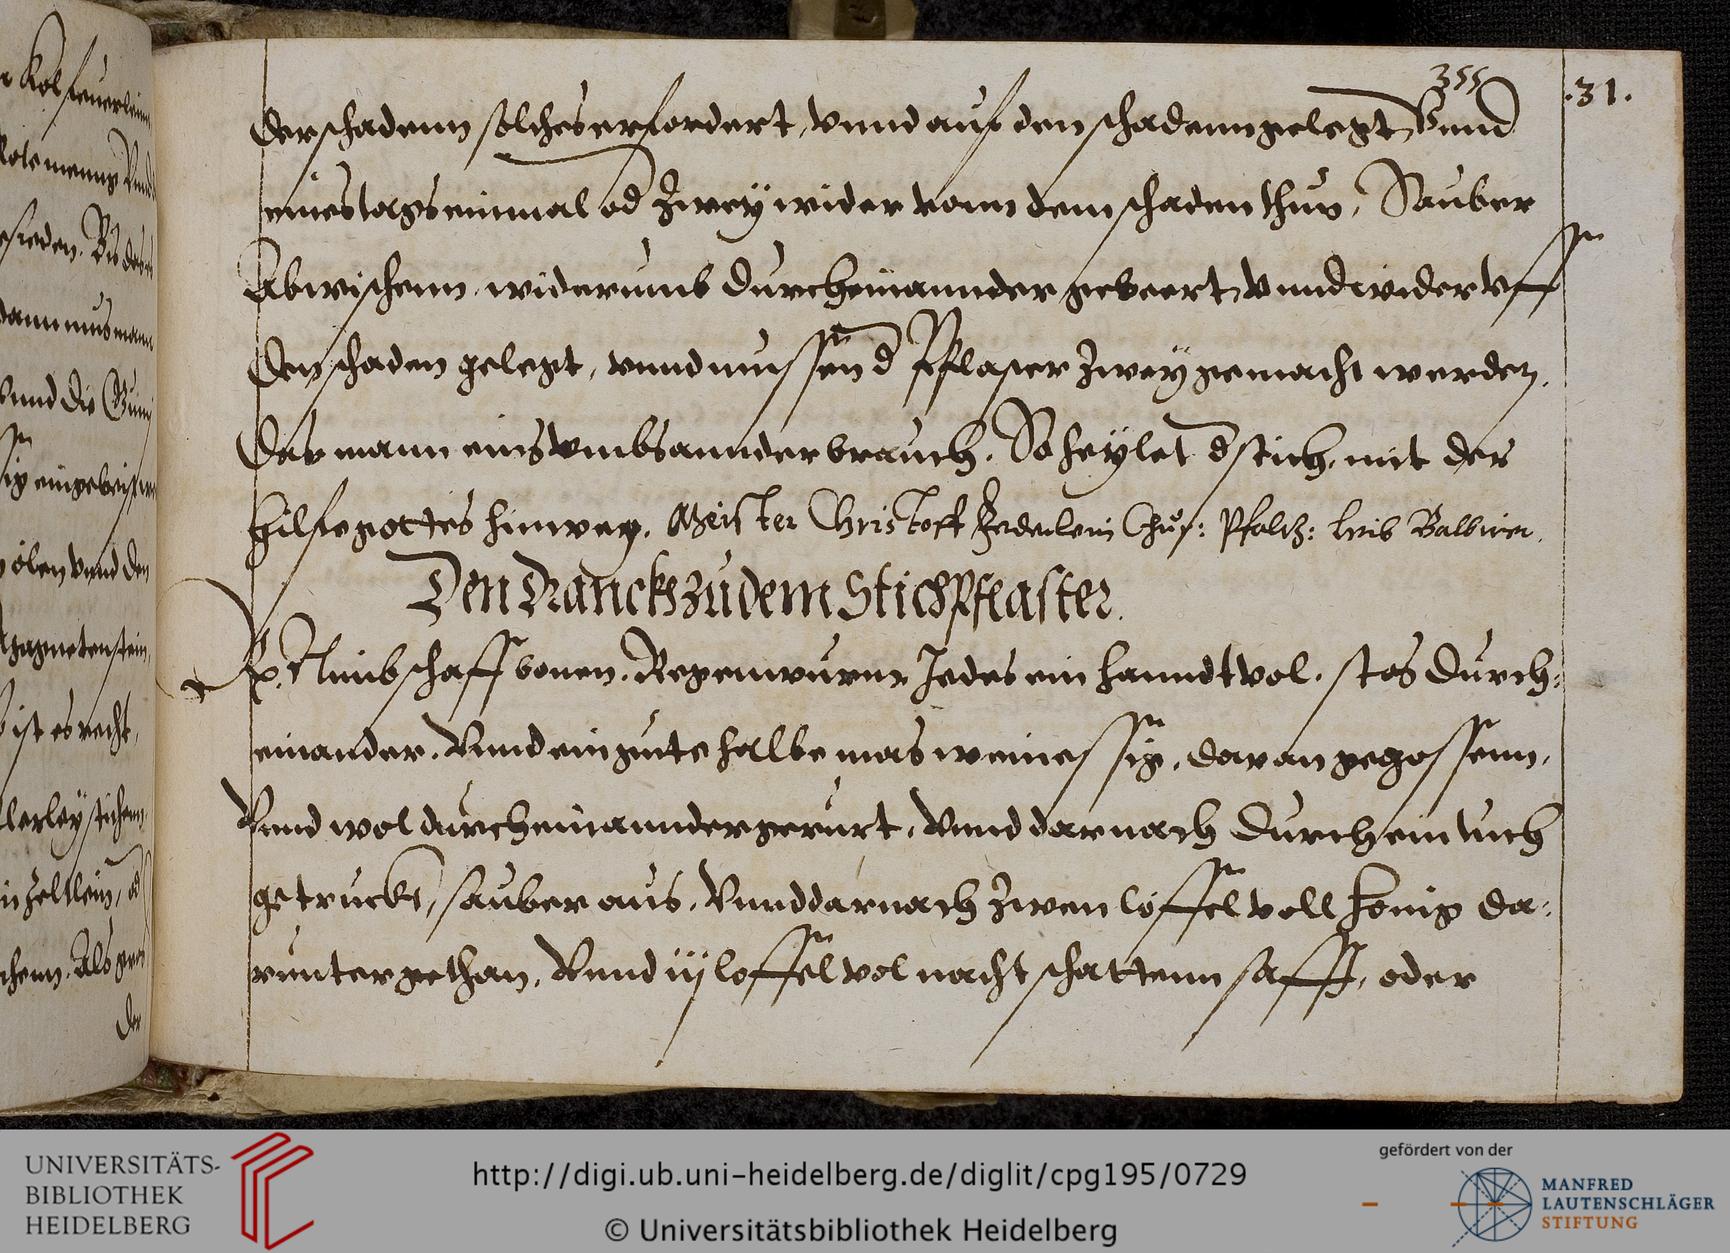 355
.31.
der schadenn solches erfordert, vnnd auf den schadenn gelegt, Vnnd
eines tags einmal od zwey wider vonn dem schaden thun, Sauber
Abwischenn, widerumb durcheinannder gebeert, vnnd wider vff
den schaden gelegt, vnnd mussen d Pflaster zwey gemacht werden,
das mann eins vmbs annder brauch. So heylet d stich, mit der
hilffe gottes hinweg. Meister Christoff Churf: Pfaltz: leib Balbirer.
Den Dranck zu dem Stichpflaster.
Rp. Nimb schaff bonen, Regenwurm Jedes ein hanndt vol, stos durch:
einander, Vnnd ein gute halbe mas weinessig, daran gegossenn,
Vnnd wol durcheinannder gerurt, Vnnd darnach durch ein tuch
getruckt, sauber aus, Vnnd darnach zwen löffel voll honig da:
runter gethan, Vnnd iij loffel vol nachtschattenn safft, oder
Kol
ist es recht,
vnnd den
der
UNIVERSITÄTS-
BIBLIOTHEK
HEIDELBERG
http://digi.ub.uni-heidelberg.de/diglit/cpg195/0729
© Universitätsbibliothek Heidelberg
gefördert von der
MANFRED
LAUTENSCHLÄGER
STIFTUNG